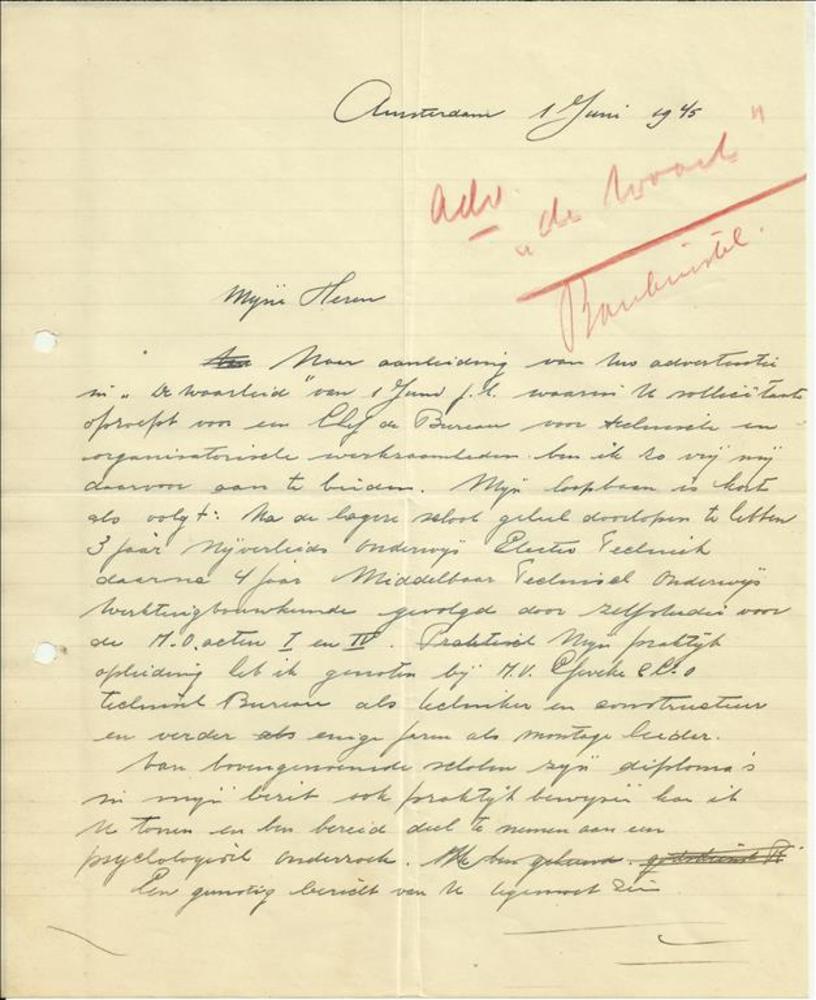 Amsterdam 1 Juni 1945
adv.
"de Waarh"
Mijne Heeren
Naar aanleiding van Uw advertentie
in "De Waarheid" van 1 Juni j.l. waarin U sollicitanten
oproept voor een Chef de Bureau voor technische en
organisatorische werkzaamheden ben ik zo vrij mij
daarvoor aan te bieden. Mijn loopbaan is kort
als volgt: Na de lagere school geheel doorlopen te hebben
3 jaar Nijverheids Onderwijs Electro Techniek
daarna 4 jaar Middelbaar Technisch Onderwijs
Werktuigbouwkunde gevolgd door zelfstudie voor
de M.O. acten I en IV. Mijn praktijk
opleiding heb ik genoten bij N.V. & Co
technisch Bureau als techniker en constructeur
en verder enige jaren als montage leider.
Van bovengenoemde scholen zijn diploma's
in mijn bezit ook praktijk bewijzen kan ik
U tonen en ben bereid deel te nemen aan een
psychologisch onderzoek. Ik ben gehuwd.
Een gunstig bericht van U tegemoet zien